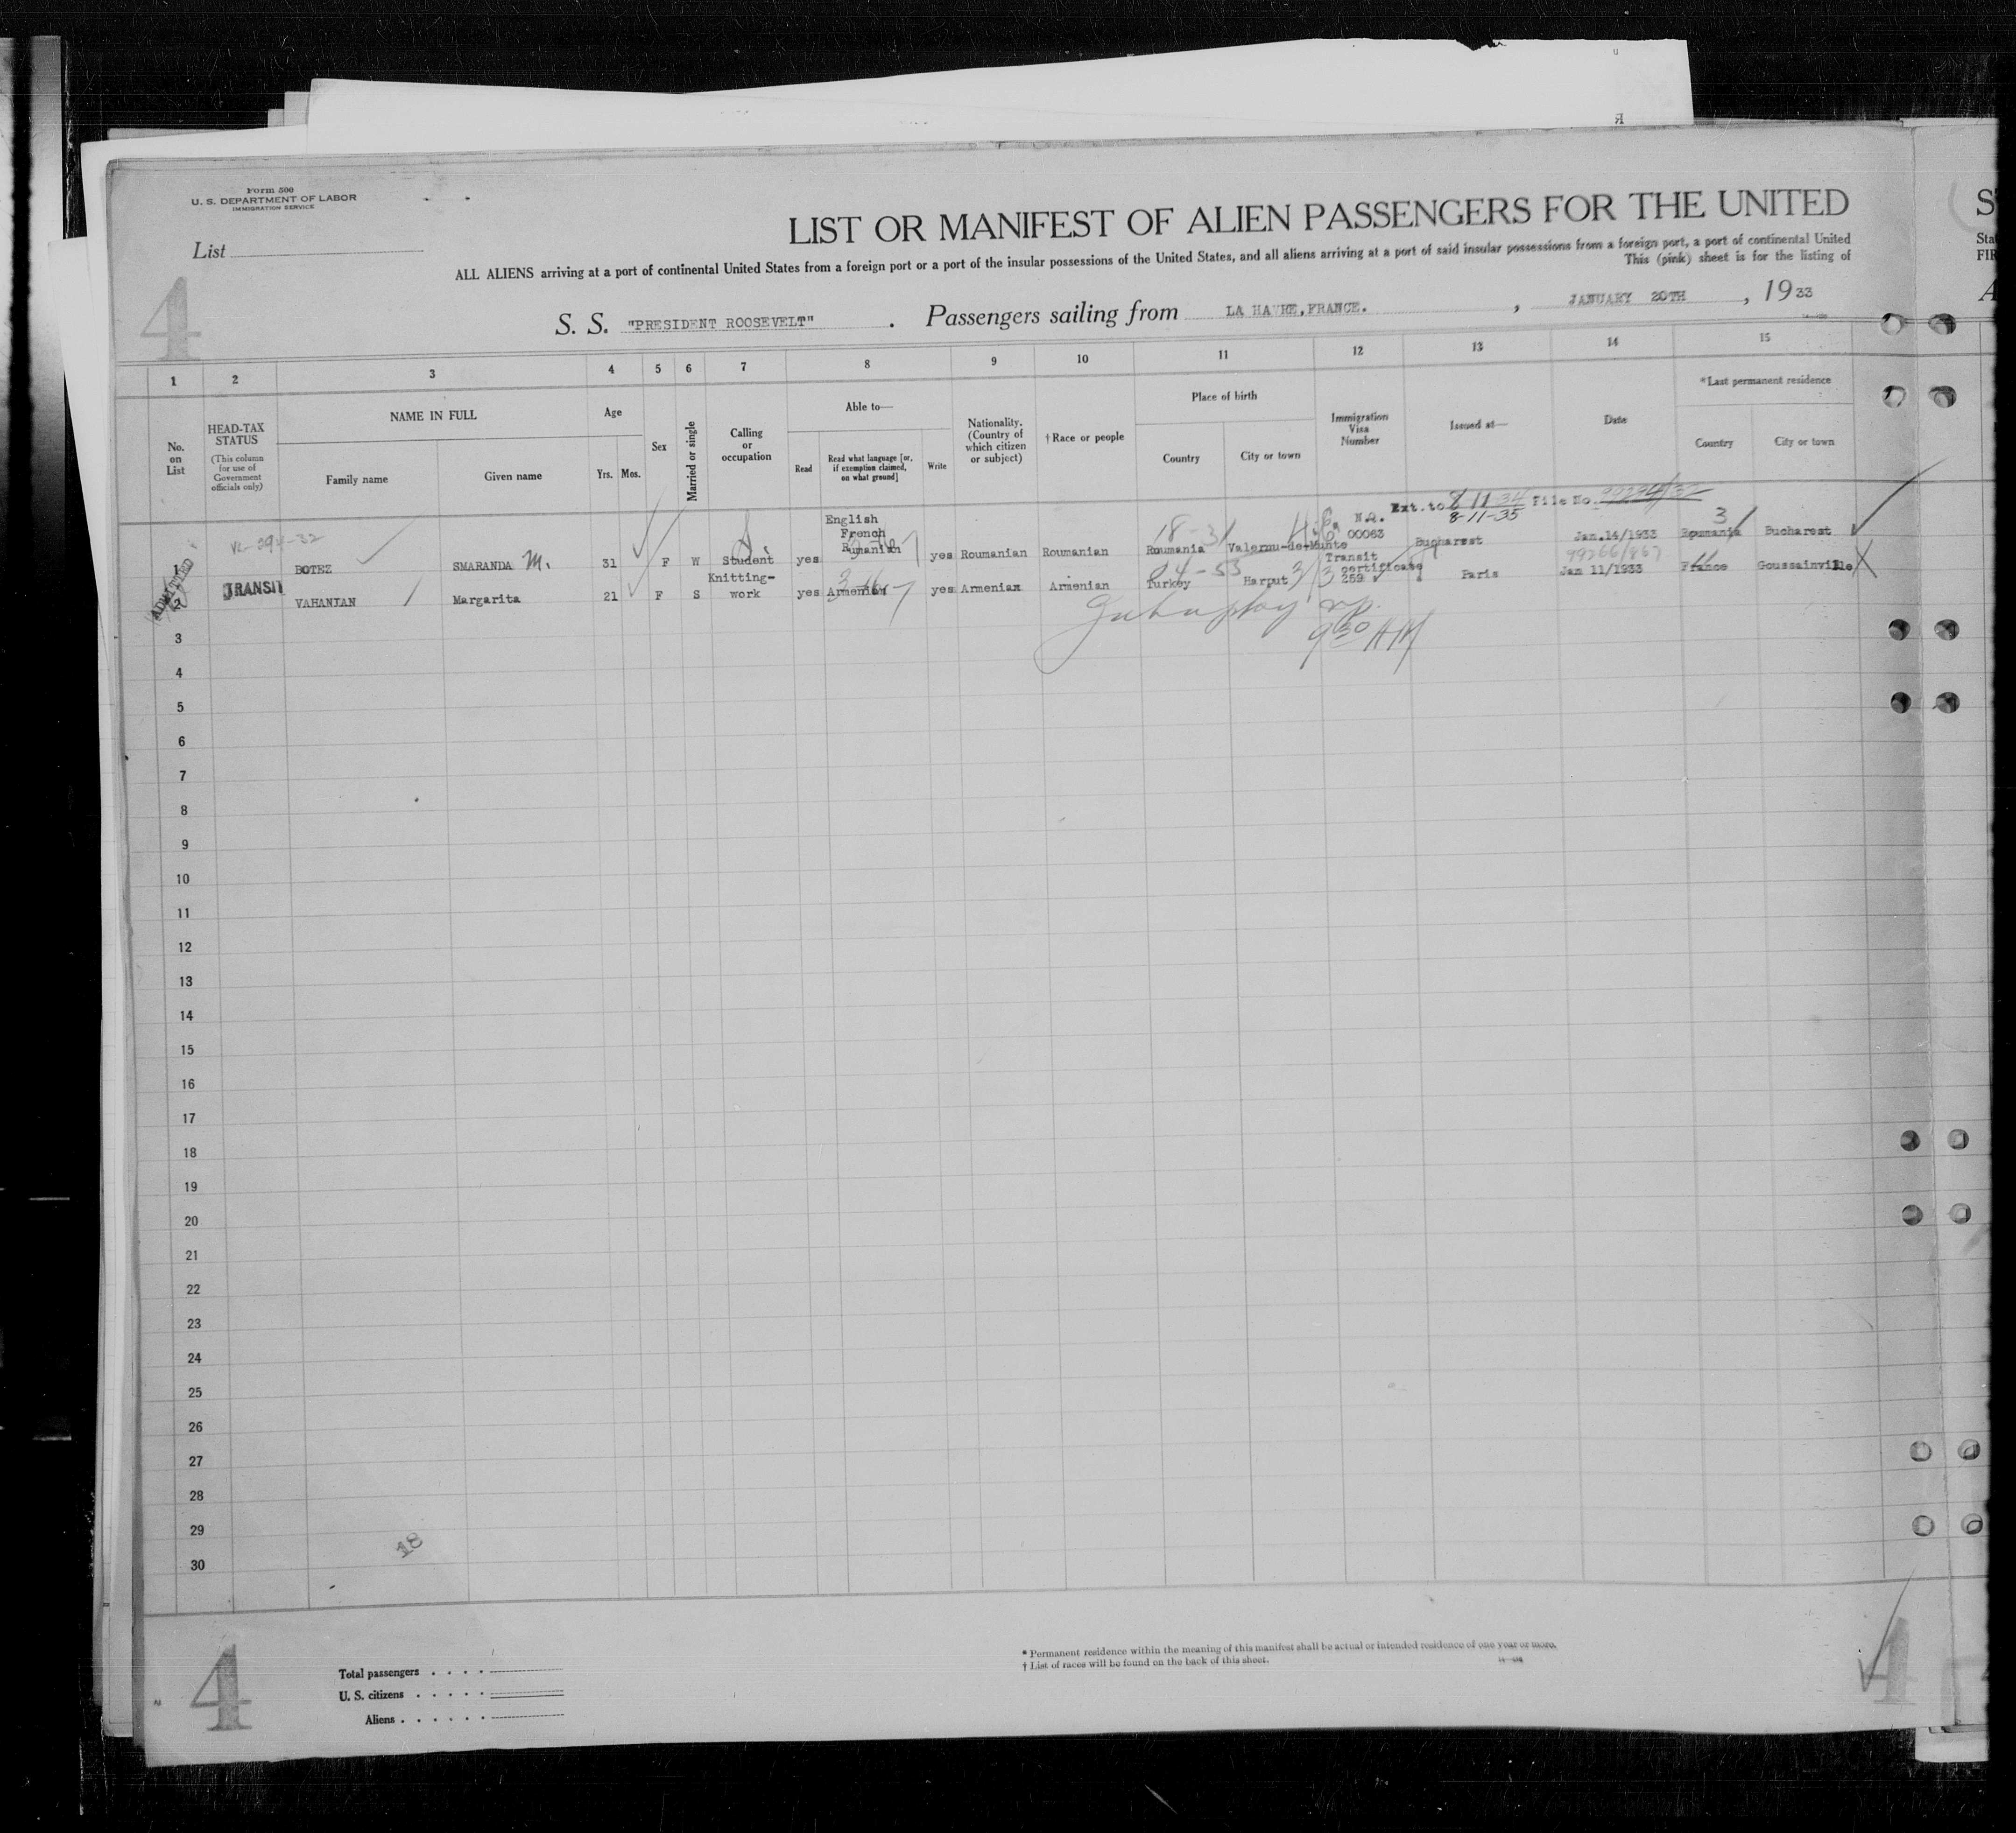 Form 500
U. S. DEPARTMENT OF LABOR
IMMIGRATION SERVICE
List
4
LIST OR MANIFEST OF ALIEN PASSENGERS FOR THE UNITED
ALL ALIENS arriving at a port of continental United States from a foreign port or a port of the insular possessions of the United States, and all aliens arriving at a port of said insular possessions from a foreign port, a port of continental United
This (pink) sheet is for the listing of
S. S. "PRESIDENT ROOSEVELT" . Passengers sailing from LA HAVRE, FRANCE. , JANUARY 20TH , 1933
1 2 3 4 5 6 7 8 9 10 11 12 13 14 15
No. on List
HEAD-TAX STATUS
(This column for use of Government officials only)
NAME IN FULL
Family name
Given name
Age
Yrs. Mos.
Sex
Married or single
Calling or occupation
Able to—
Read
Read what language [or, if exemption claimed, on what ground]
Write
Nationality. (Country of which citizen or subject)
† Race or people
Place of birth
Country
City or town
Immigration Visa Number
Issued at—
Date
*Last permanent residence
Country
City or town
Ext. to 8-11-34 File No. 99234/32
8-11-35
1 BOTEZ SMARANDA M. 31 F W Student yes English French Rumanian yes Roumanian Roumanian Roumania Valernu-de-Munte N.Q. 00063 Bucharest Jan.14/1933 Roumania Bucharest
ADMITTED
2 TRANSIT VAHANIAN Margarita 21 F S Knitting-work yes Armenian yes Armenian Armenian Turkey Harput Transit certificate 259 Paris Jan 11/1933 France Goussainville
99266/867
9 30 AM
3
4
5
6
7
8
9
10
11
12
13
14
15
16
17
18
19
20
21
22
23
24
25
26
27
28
29
30
18
4
Total passengers
U. S. citizens
Aliens
* Permanent residence within the meaning of this manifest shall be actual or intended residence of one year or more.
† List of races will be found on the back of this sheet.
4